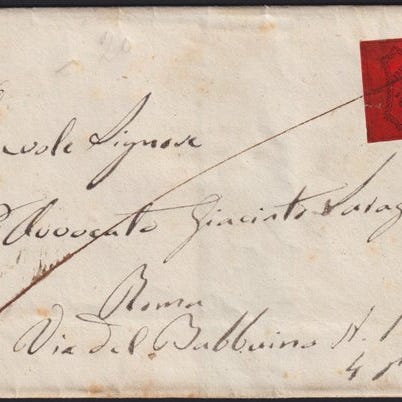 20
Signore
Avvocato Giacinto
Roma
Via del Babbuino N.
4